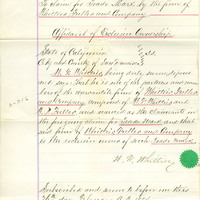 To claim for Trade Mark by the firm of
Whittier Fuller and Company
Affidavit of Exclusive Ownership.
State of California } ss.
City and County of San Francisco
W. F. Whittier being duly sworn deposes and
says that he is one of the partners and member
of the mercantile firm of Whittier Fuller
and Company composed of W. F. Whittier and
W. P. Fuller and named as the claimant in
the foregoing claim for Trade Mark and that
said firm of Whittier Fuller and Company
is the exclusive owner of such Trade Mark.
W. F. Whittier
Subscribed and sworn to before me this